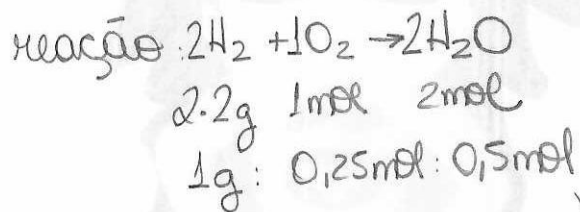 reação: 2H₂ + 1O₂ → 2H₂O
2.2g 1mol 2mol
1g: 0,25mol: 0,5mol